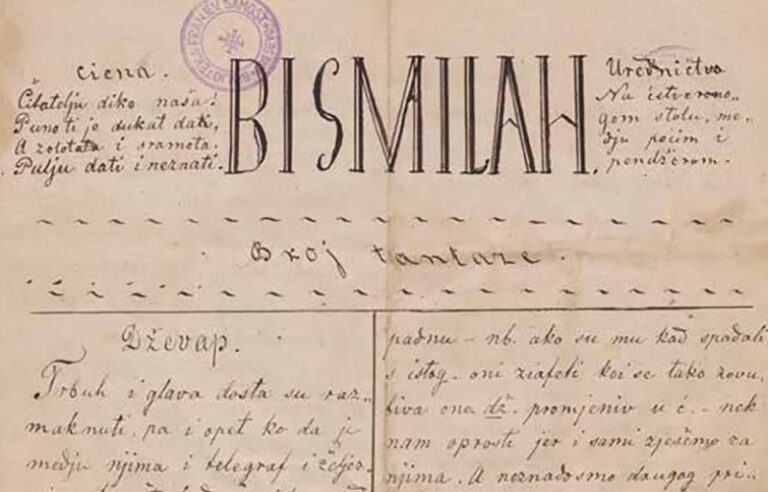 FRANJEV. SAMOST.
ciena.
Čitatelju diko naša!
Puno ti je dukat dati,
A zolotata i sramota.
Pulju dati i neznati.
BISMILAH.
Uredničtvo
Na četverono„
gom stolu, me„
dju pećim i
pendžerom.
Broj
Dževap.
Trbuh i glava dosta su raz„
maknuti, pa i opet ko da je
medju njima i telegraf i željez„
padnu – nb. ako su mu kad spadali
s istog. oni ziafeti koi se tako zovu,
biva ona dž. promjeniv u ć. – nek
nam oprosti jer i sami
njima. A neznadosmo drugog pri„